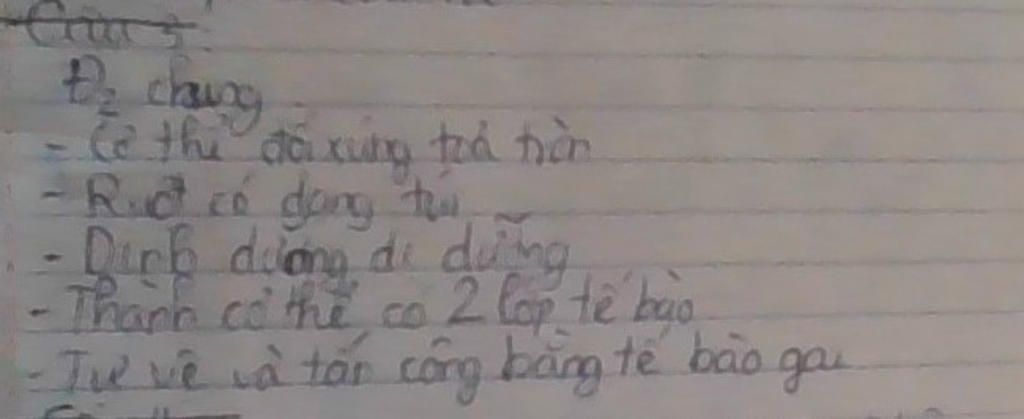 Câu 3:
Đ₂ chung
- Cơ thể đối xứng toả tròn
- Ruột có dạng túi
- Dinh dưỡng dị dưỡng
- Thành cơ thể có 2 lớp tế bào
- Tự vệ và tấn công bằng tế bào gai